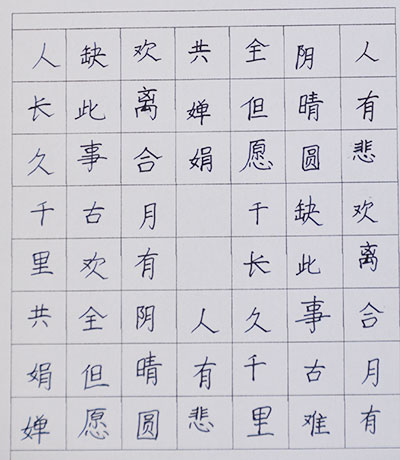 人有悲欢离合月有
阴晴圆缺此事古难
全但愿千长久千里
共婵娟人有悲
欢离合月有阴晴圆
缺此事古欢全但愿
人长久千里共娟婵